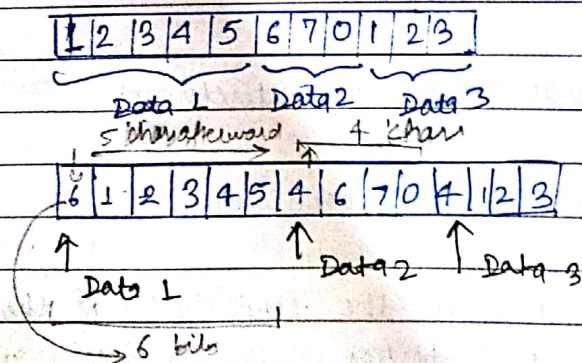 1 2 3 4 5 6 7 0 1 2 3
Data 1 Data 2 Data 3
5 4 chars
6 1 2 3 4 5 4 6 7 0 4 1 2 3
Data 1 Data 2 Data 3
6 bits